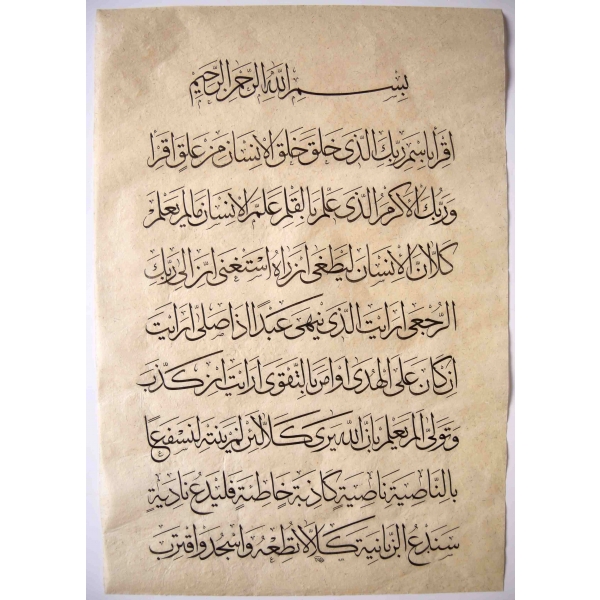 بسم الله الرحمن الرحيم
اقرا باسم ربك الذى خلق خلق الانسان من علق اقرا
وربك الاكرم الذى علم بالقلم علم الانسان مالم يعلم
كلا ان الانسان ليطغى ان راه استغنى ان الى ربك
الرجعى ارايت الذى ينهى عبدا اذا صلى ارايت
ان كان على الهدى او امر بالتقوى ارايت ان كذب
وتولى الم يعلم بان الله يرى كلا لئن لم ينته لنسفعا
بالناصية ناصية كاذبة خاطئة فليدع ناديه
سندع الزبانية كلا لا تطعه واسجد واقترب